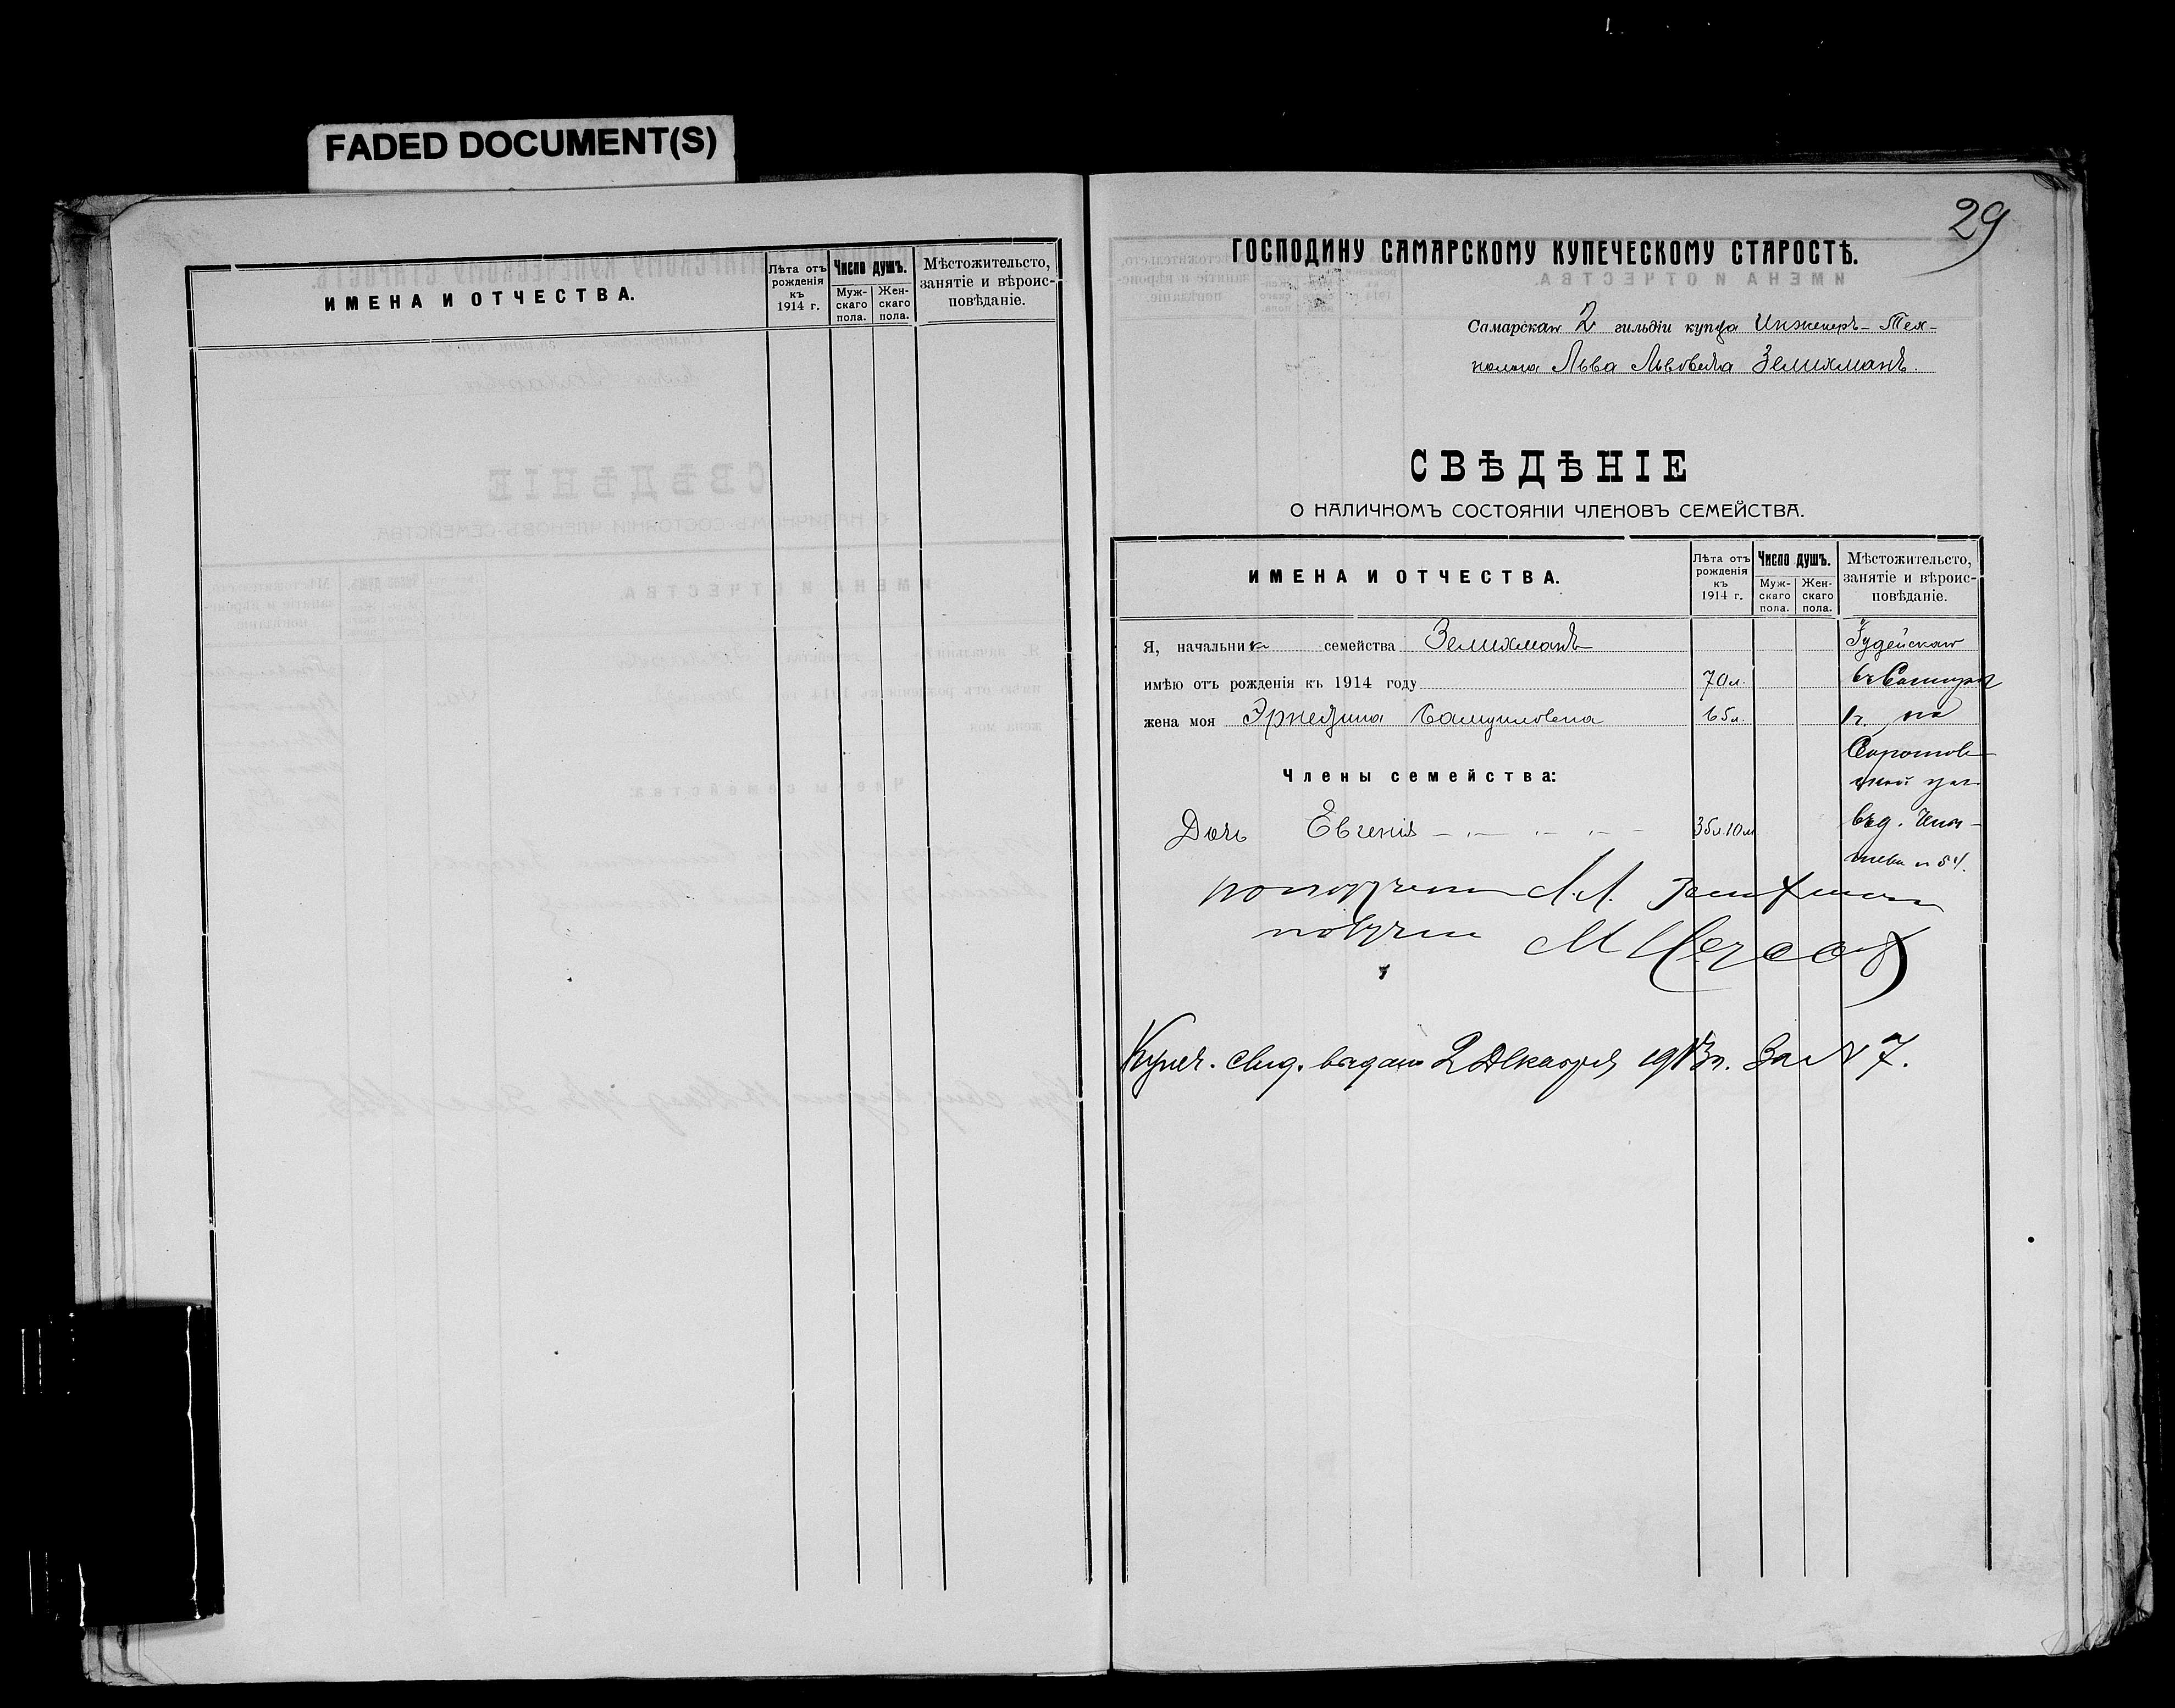 FADED DOCUMENT(S)
ИМЕНА И ОТЧЕСТВА.
Лѣта отъ рожденія къ 1914 г.
Число душъ.
Мужскаго пола.
Женскаго пола.
Мѣстожительсто, занятіе и вѣроисповѣданіе.
29
ГОСПОДИНУ САМАРСКОМУ КУПЕЧЕСКОМУ СТАРОСТѢ.
Самарскаго 2 гильдіи купца Инженеръ-Тех-
нолога Льва Львовича Зелихманъ.
СВѢДѢНІЕ
О НАЛИЧНОМЪ СОСТОЯНІИ ЧЛЕНОВЪ СЕМЕЙСТВА.
ИМЕНА И ОТЧЕСТВА.
Лѣта отъ рожденія къ 1914 г.
Число душъ.
Мужскаго пола.
Женскаго пола.
Мѣстожительсто, занятіе и вѣроисповѣданіе.
Я, начальник семейства Зелихманъ Іудейскаго
имѣю отъ рожденія къ 1914 году 70 л. въ Самарѣ
жена моя Эрнестина Самуиловна 65 л. на
Саратов
Члены семейства: ской ул.
Дочь Евгенія 35 л. 10 м
по поручению Л. Л. Зелихман
получил М
Купеч. свид. выдано 2 Декабря 1913 г. За № 7.